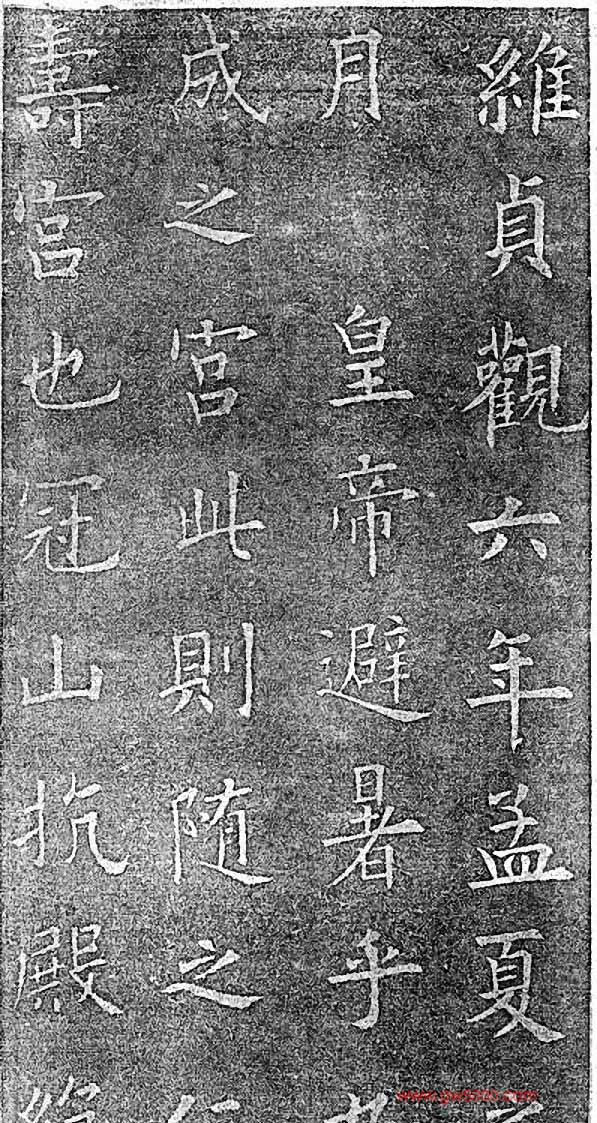 維貞觀六年孟夏
月 皇帝避暑乎
成之宮此則随之
壽宮也冠山抗殿
www.gw5000.com